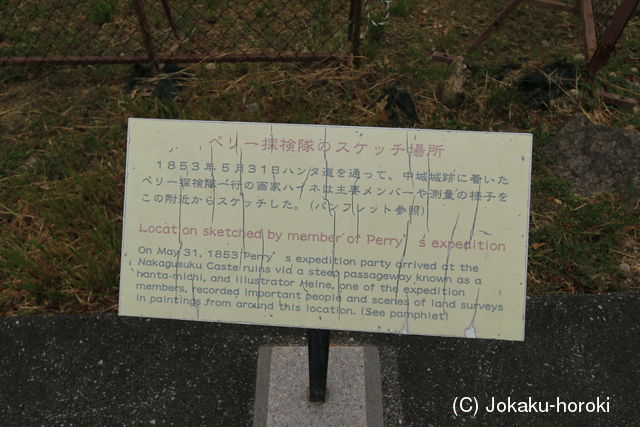 ペリー探検隊のスケッチ場所
1853年5月31日ハンタ道を通って、中城城跡に着いた
ペリー探検隊一行の画家ハイネは主要メンバーや測量の様子を
この附近からスケッチした。(パンフレット参照)
Location sketched by member of Perry's expedition
On May 31, 1853 Perry's expedition party arrived at the
Nakagusuku Caste ruins via a steep passageway known as a
hanta-michi, and illustrator Heine, one of the expedition
members, recorded important people and scenes of land surveys
in paintings from around this location. (See pamphlet)
(C) Jokaku-horoki